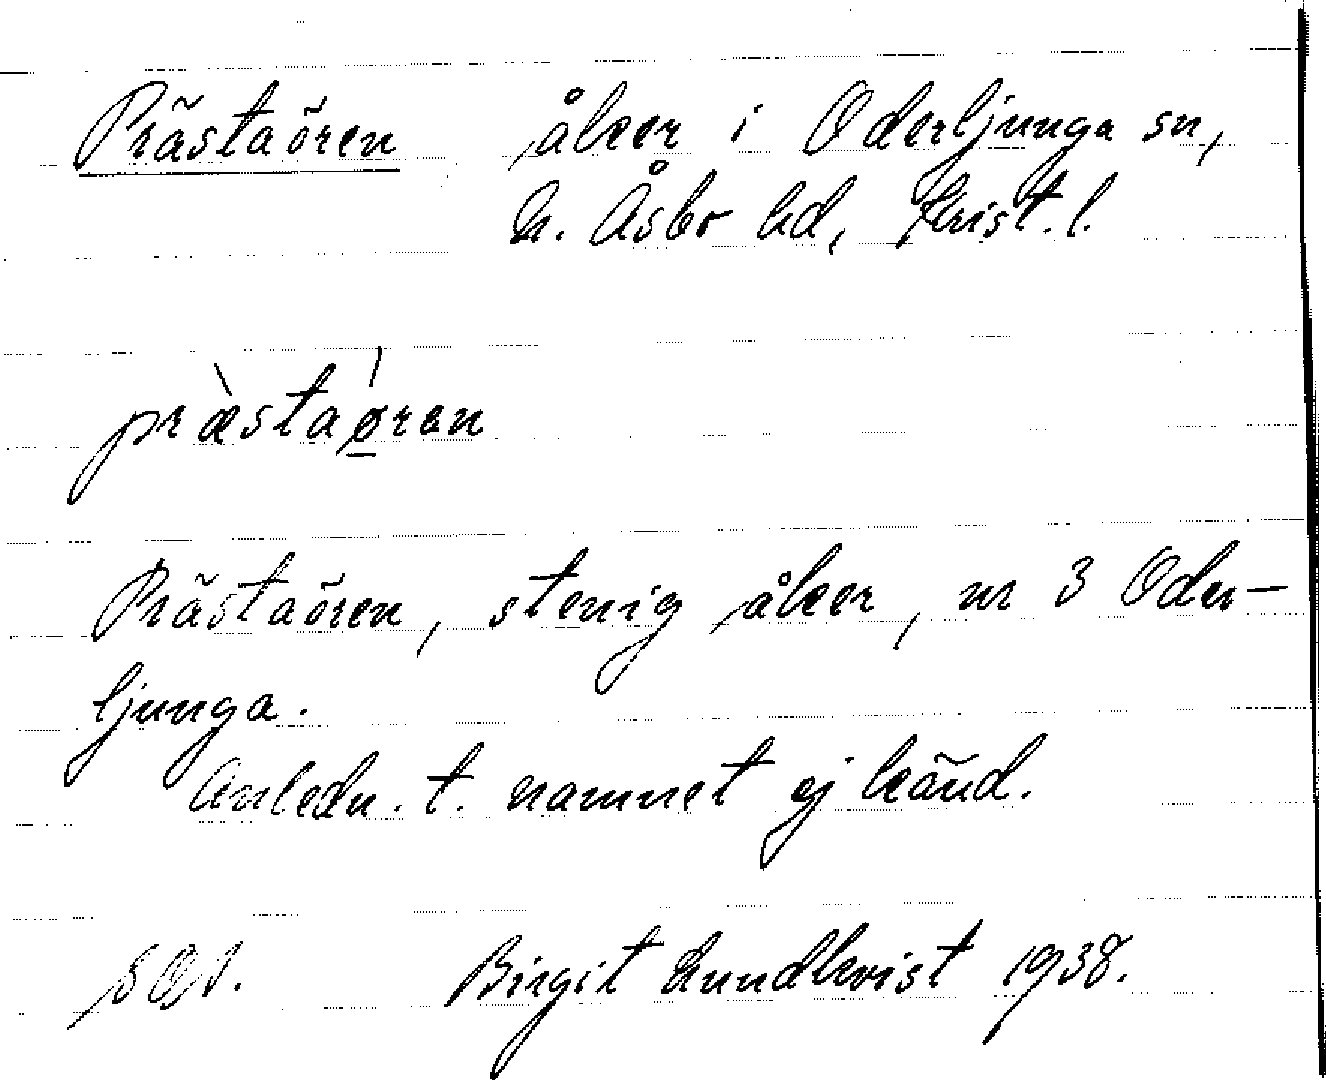 Prästaören åker i Oderljunga sn,
N. Åsbo hd, Krist. l.
præ̀staǿ̱ren
Prästaören, stenig åker, nr 3 Oder-
ljunga.
Anledn. t. namnet ej känd.
Birgit Lundkvist 1938.